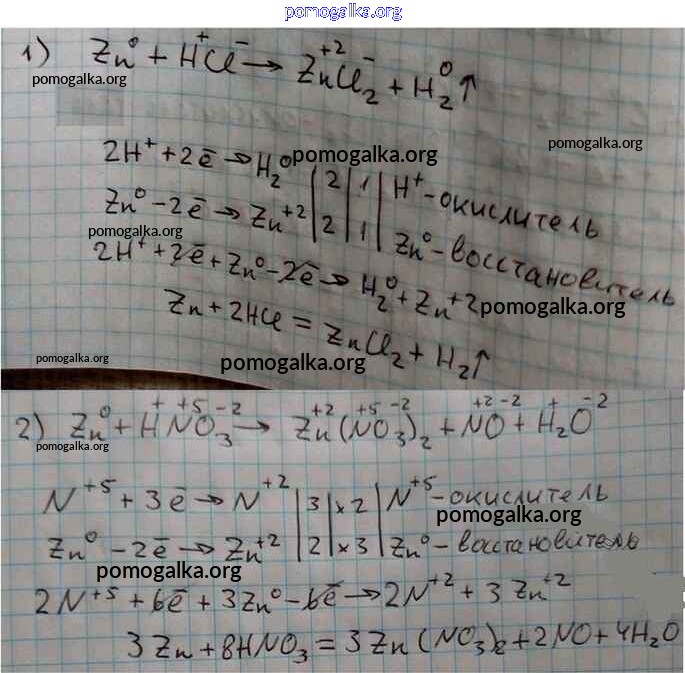 pomogalka.org
1) Zn⁰ + H⁺Cl⁻ → Zn⁺²Cl⁻₂ + H₂⁰↑
pomogalka.org
pomogalka.org
2H⁺ + 2ē → H₂⁰ | 2 | 1 | H⁺ - окислитель
pomogalka.org
Zn⁰ - 2ē → Zn⁺² | 2 | 1 | Zn⁰ - восстановитель
pomogalka.org
2H⁺ + 2ē + Zn⁰ - 2ē → H₂⁰ + Zn⁺²
pomogalka.org
Zn + 2HCl = ZnCl₂ + H₂↑
pomogalka.org
pomogalka.org
2) Zn⁰ + H⁺N⁺⁵O⁻²₃ → Zn⁺²(N⁺⁵O⁻²₃)₂ + N⁺²O⁻² + H⁺₂O⁻²
pomogalka.org
N⁺⁵ + 3ē → N⁺² | 3 | x 2 | N⁺⁵ - окислитель
pomogalka.org
Zn⁰ - 2ē → Zn⁺² | 2 | x 3 | Zn⁰ - восстановитель
pomogalka.org
2N⁺⁵ + 6ē + 3Zn⁰ - 6ē → 2N⁺² + 3Zn⁺²
3Zn + 8HNO₃ = 3Zn(NO₃)₂ + 2NO + 4H₂O